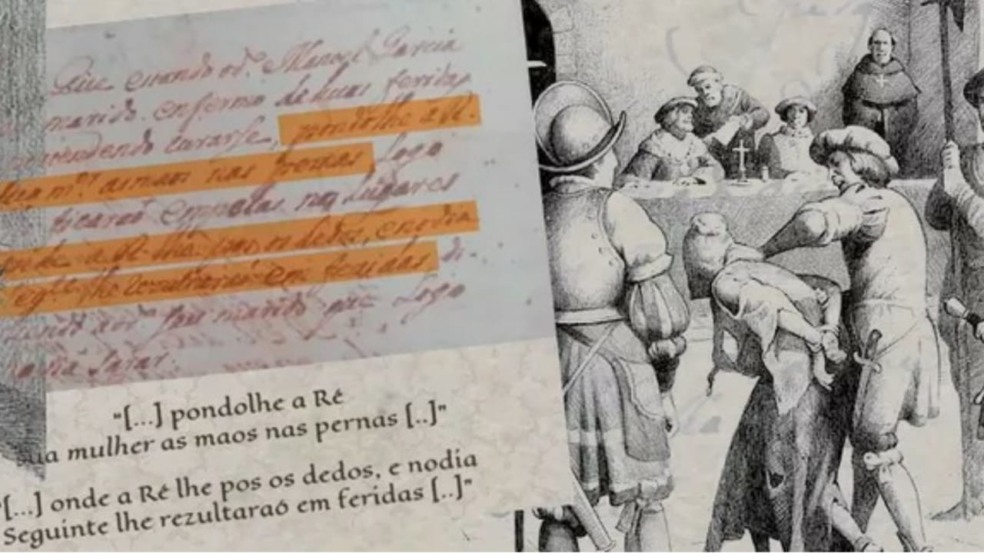 Que estando o d.º Manoel Garcia
marido enfermo de huas feridas
pertendendo curarse, pondolhe a R.
sua m.er as maos nas pernas logo
ficaraõ empolas nos lugares
onde a Ré lhe pos os dedos, e nodia
seg.te lhe rezultaraõ em feridas di-
seu marido que logo
"[...] pondolhe a Ré
ua mulher as maos nas pernas [..]"
"[...] onde a Ré lhe pos os dedos, e nodia
Seguinte lhe rezultaraõ em feridas [..]"